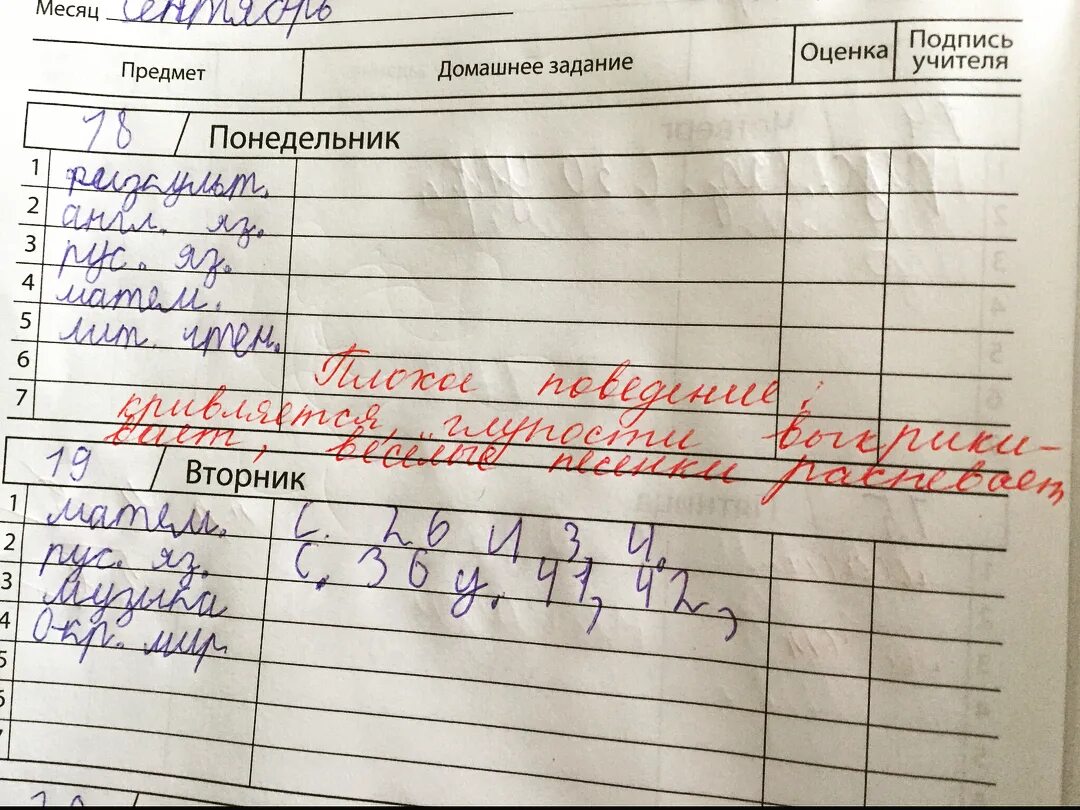 Месяц сентябрь
Предмет Домашнее задание Оценка Подпись учителя
18 Понедельник
1 физкульт.
2 англ. яз.
3 рус. яз.
4 матем.
5 лит. чтен.
6
7
Плохое поведение:
кривляется, глупости выкрики-
вает, весёлые песенки распевает
19 Вторник
1 матем. С. 26 И. 3, 4.
2 рус. яз. С. 36 у. 41, 42,
3 музыка
4 Окр. мир
5